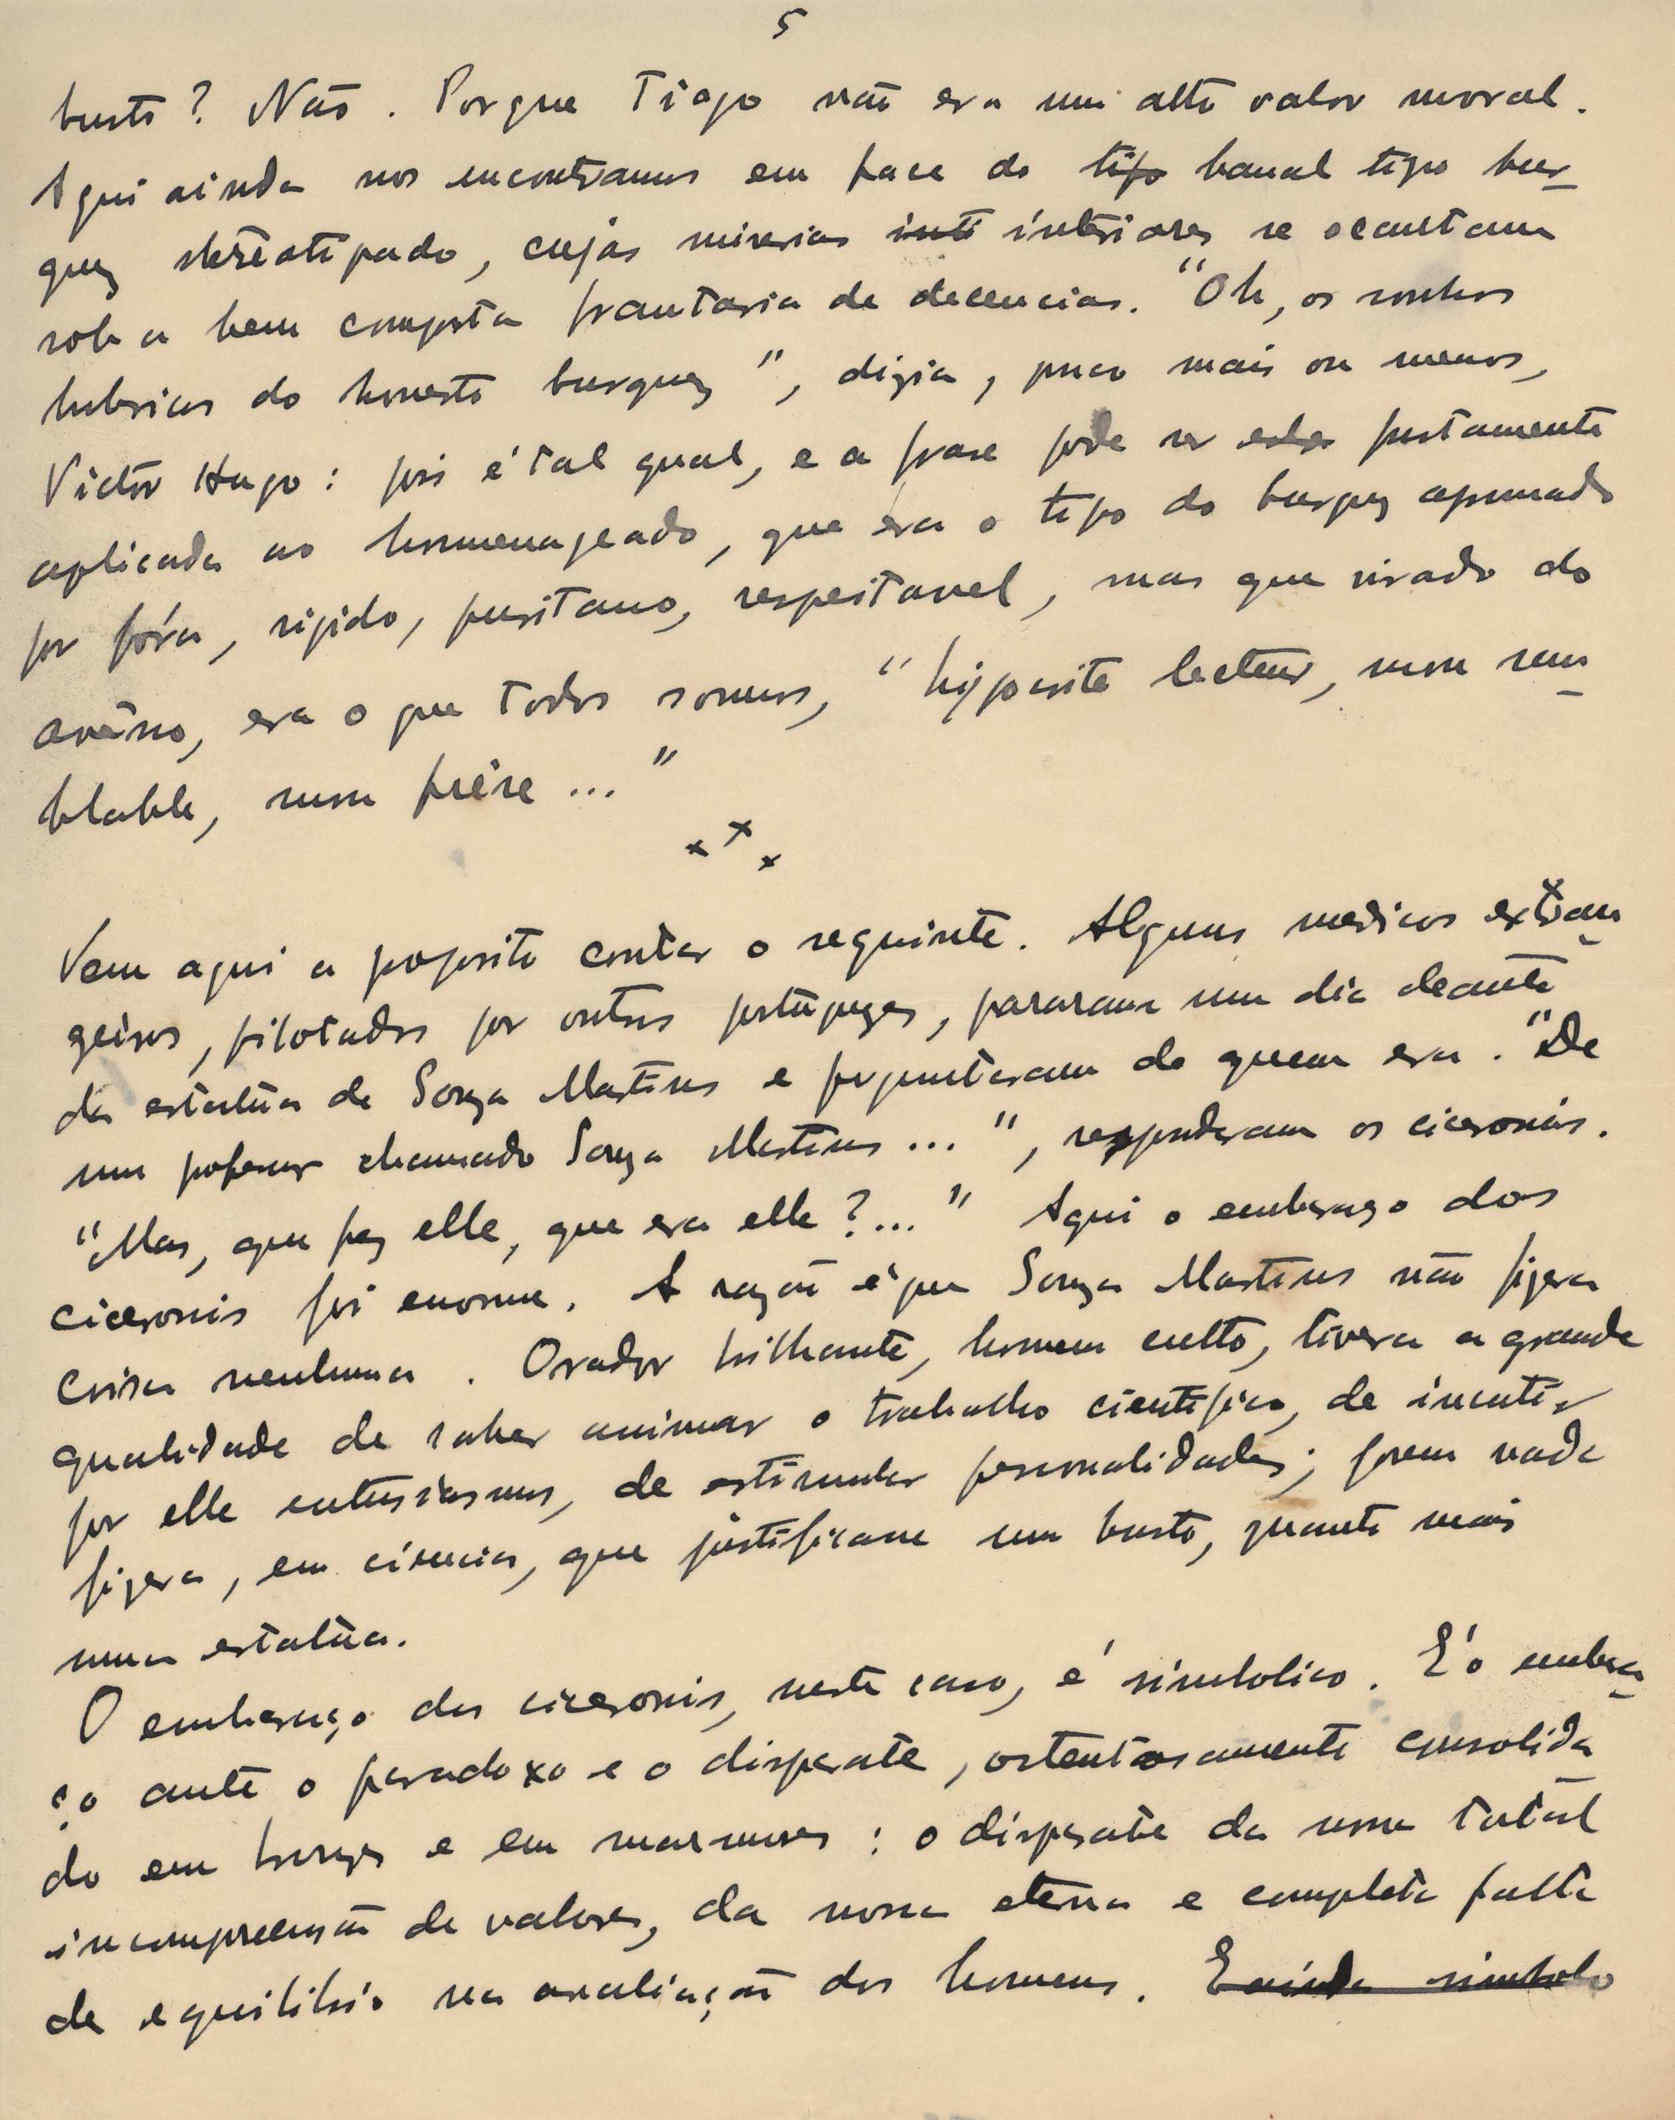 5
busto? Não. Porque Tiago não era um alto valor moral.
Aqui ainda nos encontramos em face do tipo banal tipo bur-
guez stereotipado, cujas miserias inte interiores se occultam
sob a bem composta frantaria de decencias. "Oh, os sonhos
lubricos do honesto burguez", dizia, pouco mais ou menos,
Victor Hugo: pois é tal qual, e a frase pode ser justamente
aplicada ao hommenageado, que era o tipo do burguez aprumado
por fóra, rigido, puritano, respeitavel, mas que virado do
avêsso, era o que todos somos, "hypocrite lecteur, mon sem-
blable, mon frère..."
x x x
Vem aqui a proposito contar o seguinte. Alguns medicos extran-
geiros, pilotados por outros portuguezes, pararam um dia deante
da estatua de Souza Martins e perguntaram de quem era. "De
um professor chamado Souza Martins...", responderam os ciceronis.
"Mas, que fez elle, que era elle?..." Aqui o embaraço dos
ciceronis foi enorme. A razão é que Souza Martins não fizera
coisa nenhuma. Orador brilhante, homem culto, tivera a grande
qualidade de saber animar o trabalho cientifico, de incutir
por elle entusiasmos, de estimular personalidades; porem nada
fizera, em ciencia, que justificasse um busto, quanto mais
uma estatua.
O embaraço dos ciceronis, neste caso, é simbolico. E' o embara-
ço ante o paradoxo e o disparate, ostentosamente consolida-
do em bronzes e em marmores: o disparate da nossa total
incompreensão de valores, da nossa eterna e completa falta
de equilibrio na avaliação dos homens. E ainda simbolo